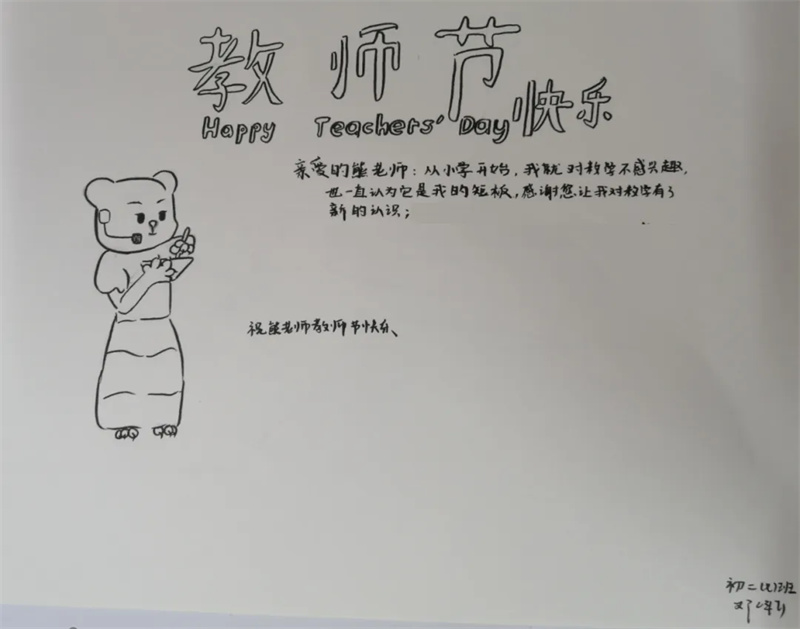 教师节快乐
Happy Teachers' Day
亲爱的熊老师：从小学开始，我就对数学不感兴趣，
也一直认为它是我的短板，感谢您让我对数学有了
新的认识；
祝熊老师教师节快乐、
初二班
邓